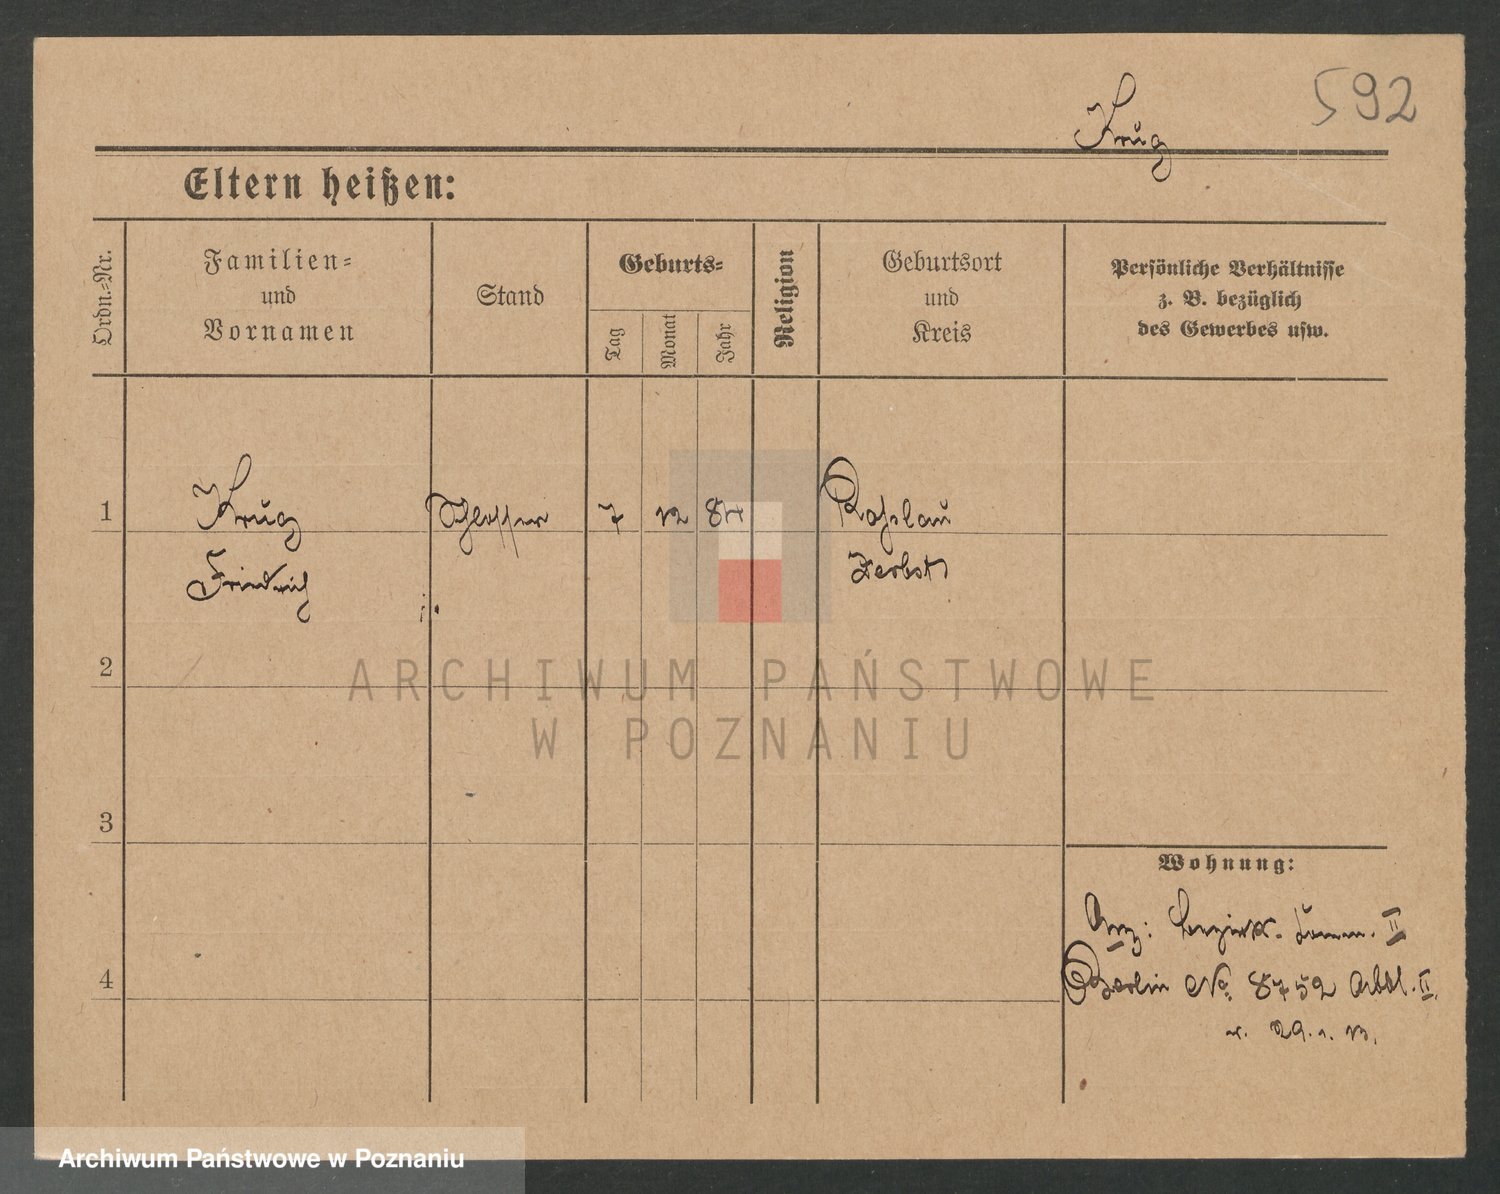 592
Krug
Eltern heißen:
Ordn.-Nr.
Familien-
und
Vornamen
Stand
Geburts-
Tag
Monat
Jahr
Religion
Geburtsort
und
Kreis
Persönliche Verhältnisse
z. B. bezüglich
des Gewerbes usw.
1
Krug
Schlosser
7
12
84
Roßlau
Friedrich
Zerbst
2
ARCHIWUM PAŃSTWOWE
W POZNANIU
3
Wohnung:
Bezirks. Komm. II
4
Berlin No. 8752 Abtl. II.
v. 29. 1. 13.
Archiwum Państwowe w Poznaniu